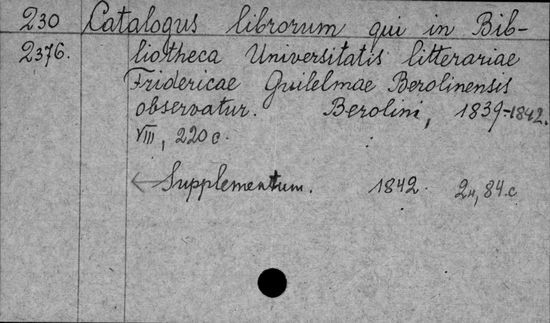 230 Catalogus librorum qui in Bib-
2376. liotheca Universitatis litterariae
Fridericae Guilelmae Berolinensis
observatur. Berolini, 1839-1842.
VIII, 220 c.
Supplementum. 1842. 2н, 84 c